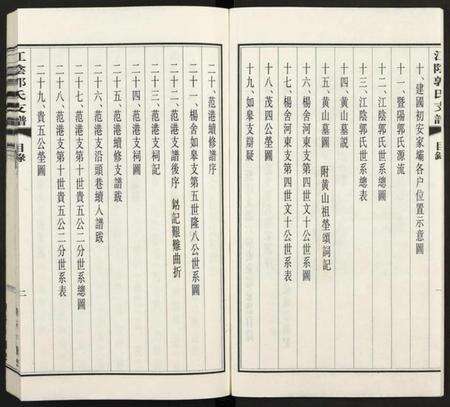 江陰郭氏支譜
目錄
十、建國初安家壩各户位置示意圖
十一、暨陽郭氏源流
十二、江陰郭氏世系總圖
十三、江陰郭氏世系總表
十四、黄山墓説
十五、黄山墓圖 附黄山祖塋頌詞記
十六、楊舍河東支第四世文十公世系圖
十七、楊舍河東支第四世文十公世系表
十八、茂四公塋圖
十九、如皋支辯疑
二十、范港續修譜圖
二十一、楊舍如皋支第五世隆八公世系圖
二十二、范港支譜後序 銘記艱難曲折
二十三、范港支祠記
二十四、范港支祠圖
二十五、范港續修支譜跋
二十六、范港支沿頭巷續人譜跋
二十七、范港支第十世貴五公二分世系總圖
二十八、范港支第十世貴五公二分世系表
二十九、貴五公塋圖
江陰郭氏支譜
目錄
二